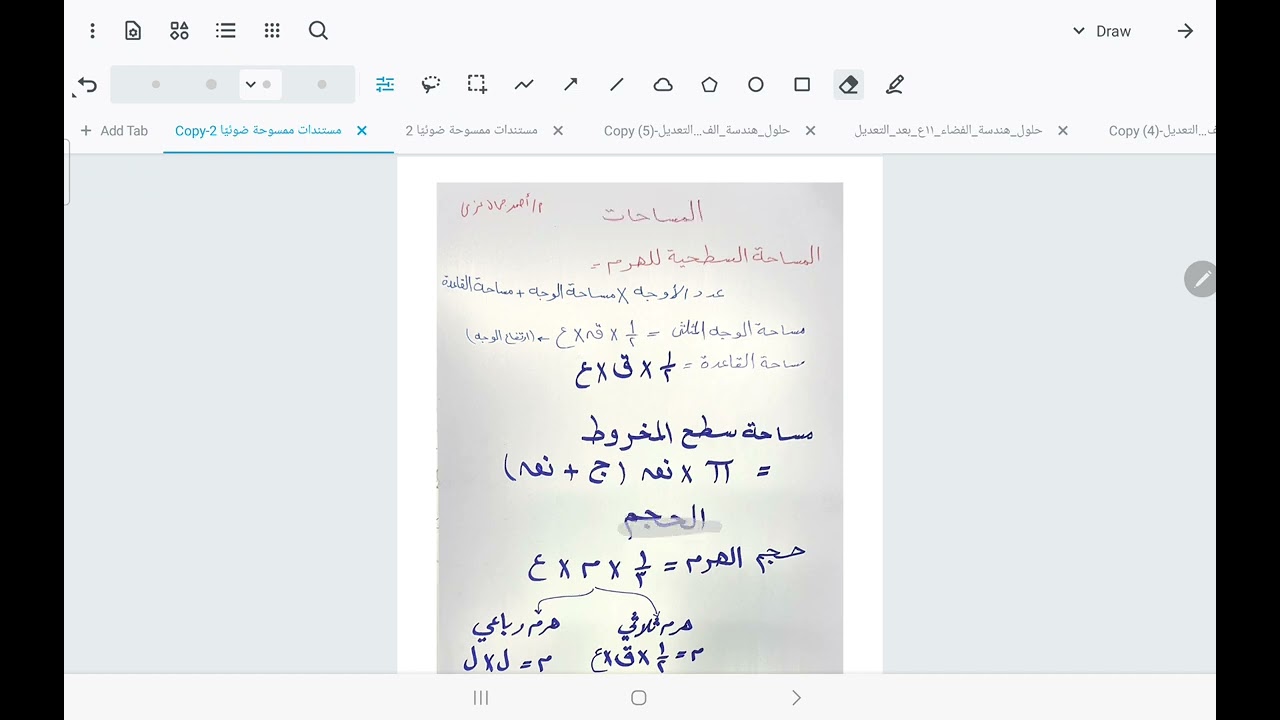 Draw
Add Tab
مستندات ممسوحة ضوئيًا 2-Copy
مستندات ممسوحة ضوئيًا 2
حلول_هندسة_الف...التعديل-(5) Copy
حلول_هندسة_الفضاء_١١ع_بعد_التعديل
ف...التعديل-(4) Copy
المساحات
المساحة السطحية للهرم =
عدد الأوجه × مساحة الوجه + مساحة القاعدة
مساحة الوجه المثلث = ١/٢ × ق × ع ← (ارتفاع الوجه)
مساحة القاعدة = ١/٢ × ق × ع
مساحة سطح المخروط
= π × نق (ج + نق)
الحجم
حجم الهرم = ١/٣ × م × ع
هرم ثلاثي هرم رباعي
م = ١/٢ × ق × ع م = ل × ل